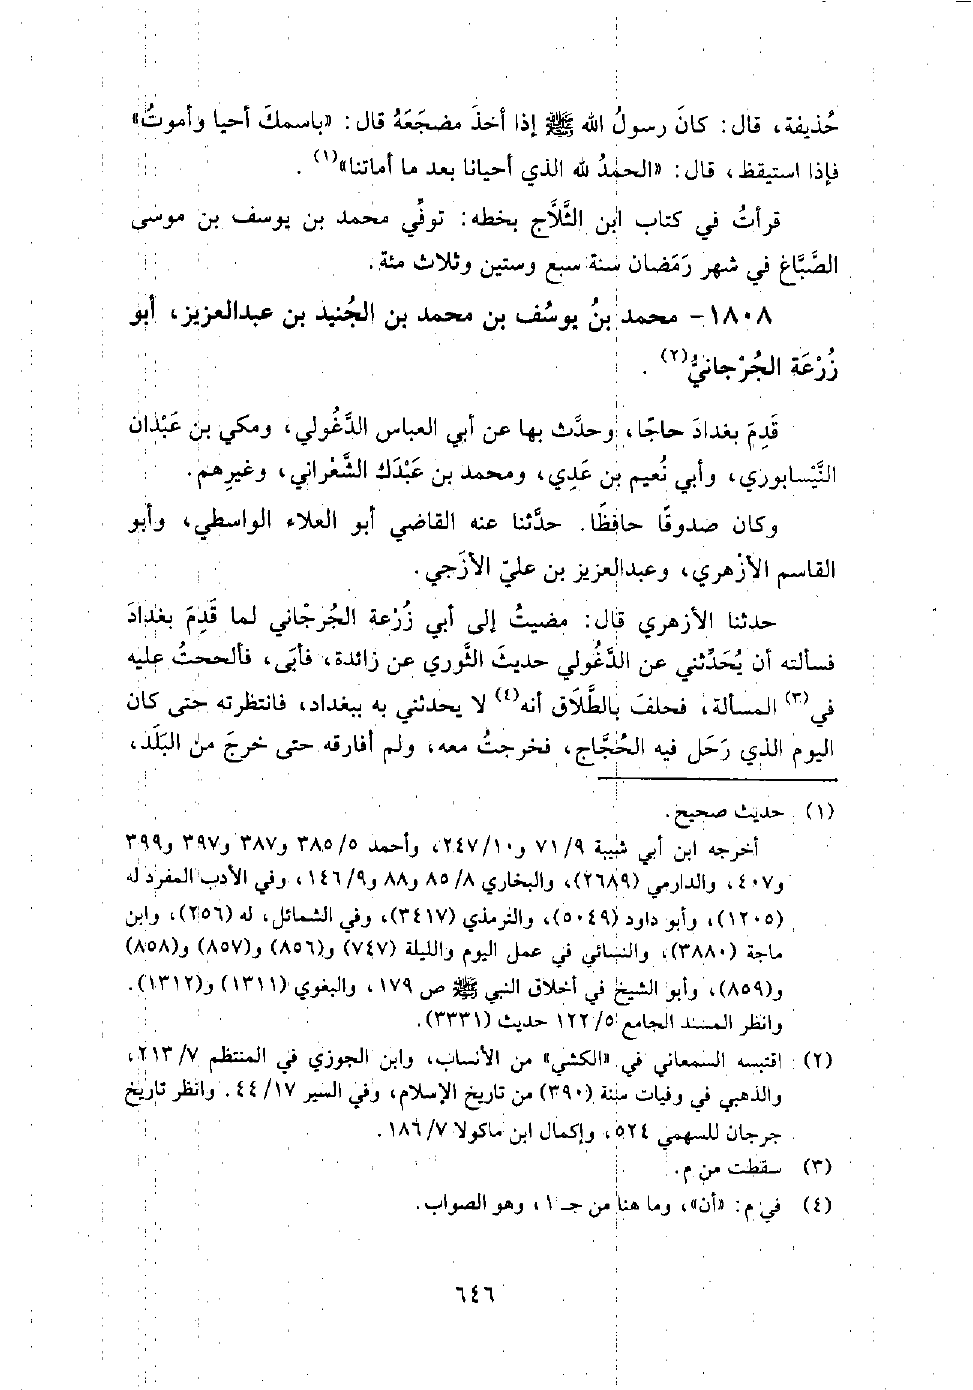 حُذيفة، قال: كانَ رسولُ الله ﷺ إذا أخذَ مضجَعَهُ قال: «باسمكَ أحيا وأموتُ»
فإذا استيقظ، قال: «الحمدُ لله الذي أحيانا بعد ما أماتنا»(١) .
قرأتُ في كتاب ابن الثَّلَّاج بخطه: توفِّي محمد بن يوسف بن موسى
الصَّبَّاغ في شهر رَمَضان سنة سبع وستين وثلاث مئة.
١٨٠٨- محمد بنُ يوسُف بن محمد بن الجُنيد بن عبدالعزيز، أبو
زُرْعَة الجُرْجانيُّ(٢) .
قَدِمَ بغدادَ حاجًا، وحدَّث بها عن أبي العباس الدَّغُولي، ومكي بن عَبْدان
النَّيْسابوري، وأبي نُعيم بن عَدِي، ومحمد بن عَبْدَك الشَّعْراني، وغيرِهم.
وكان صدوقًا حافظًا. حدَّثنا عنه القاضي أبو العلاء الواسطي، وأبو
القاسم الأزْهري، وعبدالعزيز بن عليّ الأزَجي.
حدثنا الأزهري قال: مضيتُ إلى أبي زُرْعة الجُرجْاني لما قَدِمَ بغدادَ
فسألته أن يُحَدِّثني عن الدَّغُولي حديثَ الثَّوري عن زائدة، فأبَى، فألححتُ عليه
في(٣) المسألة، فحلفَ بالطَّلَاق أنه(٤) لا يحدثني به ببغداد، فانتظرته حتى كان
اليوم الذي رَحَل فيه الحُجَّاج، فخرجتُ معه، ولم أفارقه حتى خرجَ من البَلَد،
(١) حديث صحيح.
أخرجه ابن أبي شيبة ٧١/٩ و٢٤٧/١٠، وأحمد ٣٨٥/٥ و٣٨٧ و٣٩٧ و٣٩٩
و٤٠٧، والدارمي (٢٦٨٩)، والبخاري ٨٥/٨ و٨٨ و١٤٦/٩، وفي الأدب المفرد له
(١٢٠٥)، وأبو داود (٥٠٤٩)، والترمذي (٣٤١٧)، وفي الشمائل، له (٢٥٦)، وابن
ماجة (٣٨٨٠)، والنسائي في عمل اليوم والليلة (٧٤٧) و(٨٥٦) و(٨٥٧) و(٨٥٨)
و(٨٥٩)، وأبو الشيخ في أخلاق النبي ﷺ ص ١٧٩، والبغوي (١٣١١) و(١٣١٢).
وانظر المسند الجامع ١٢٢/٥ حديث (٣٣٣١).
(٢) اقتبسه السمعاني في «الكشي» من الأنساب، وابن الجوزي في المنتظم ٢١٣/٧،
والذهبي في وفيات سنة (٣٩٠) من تاريخ الإسلام، وفي السير ٤٤/١٧. وانظر تاريخ
جرجان للسهمي ٥٢٤، وإكمال ابن ماكولا ١٨٦/٧.
(٣) سقطت من م.
(٤) في م: «أن»، وما هنا من جـ ١، وهو الصواب.
٦٤٦